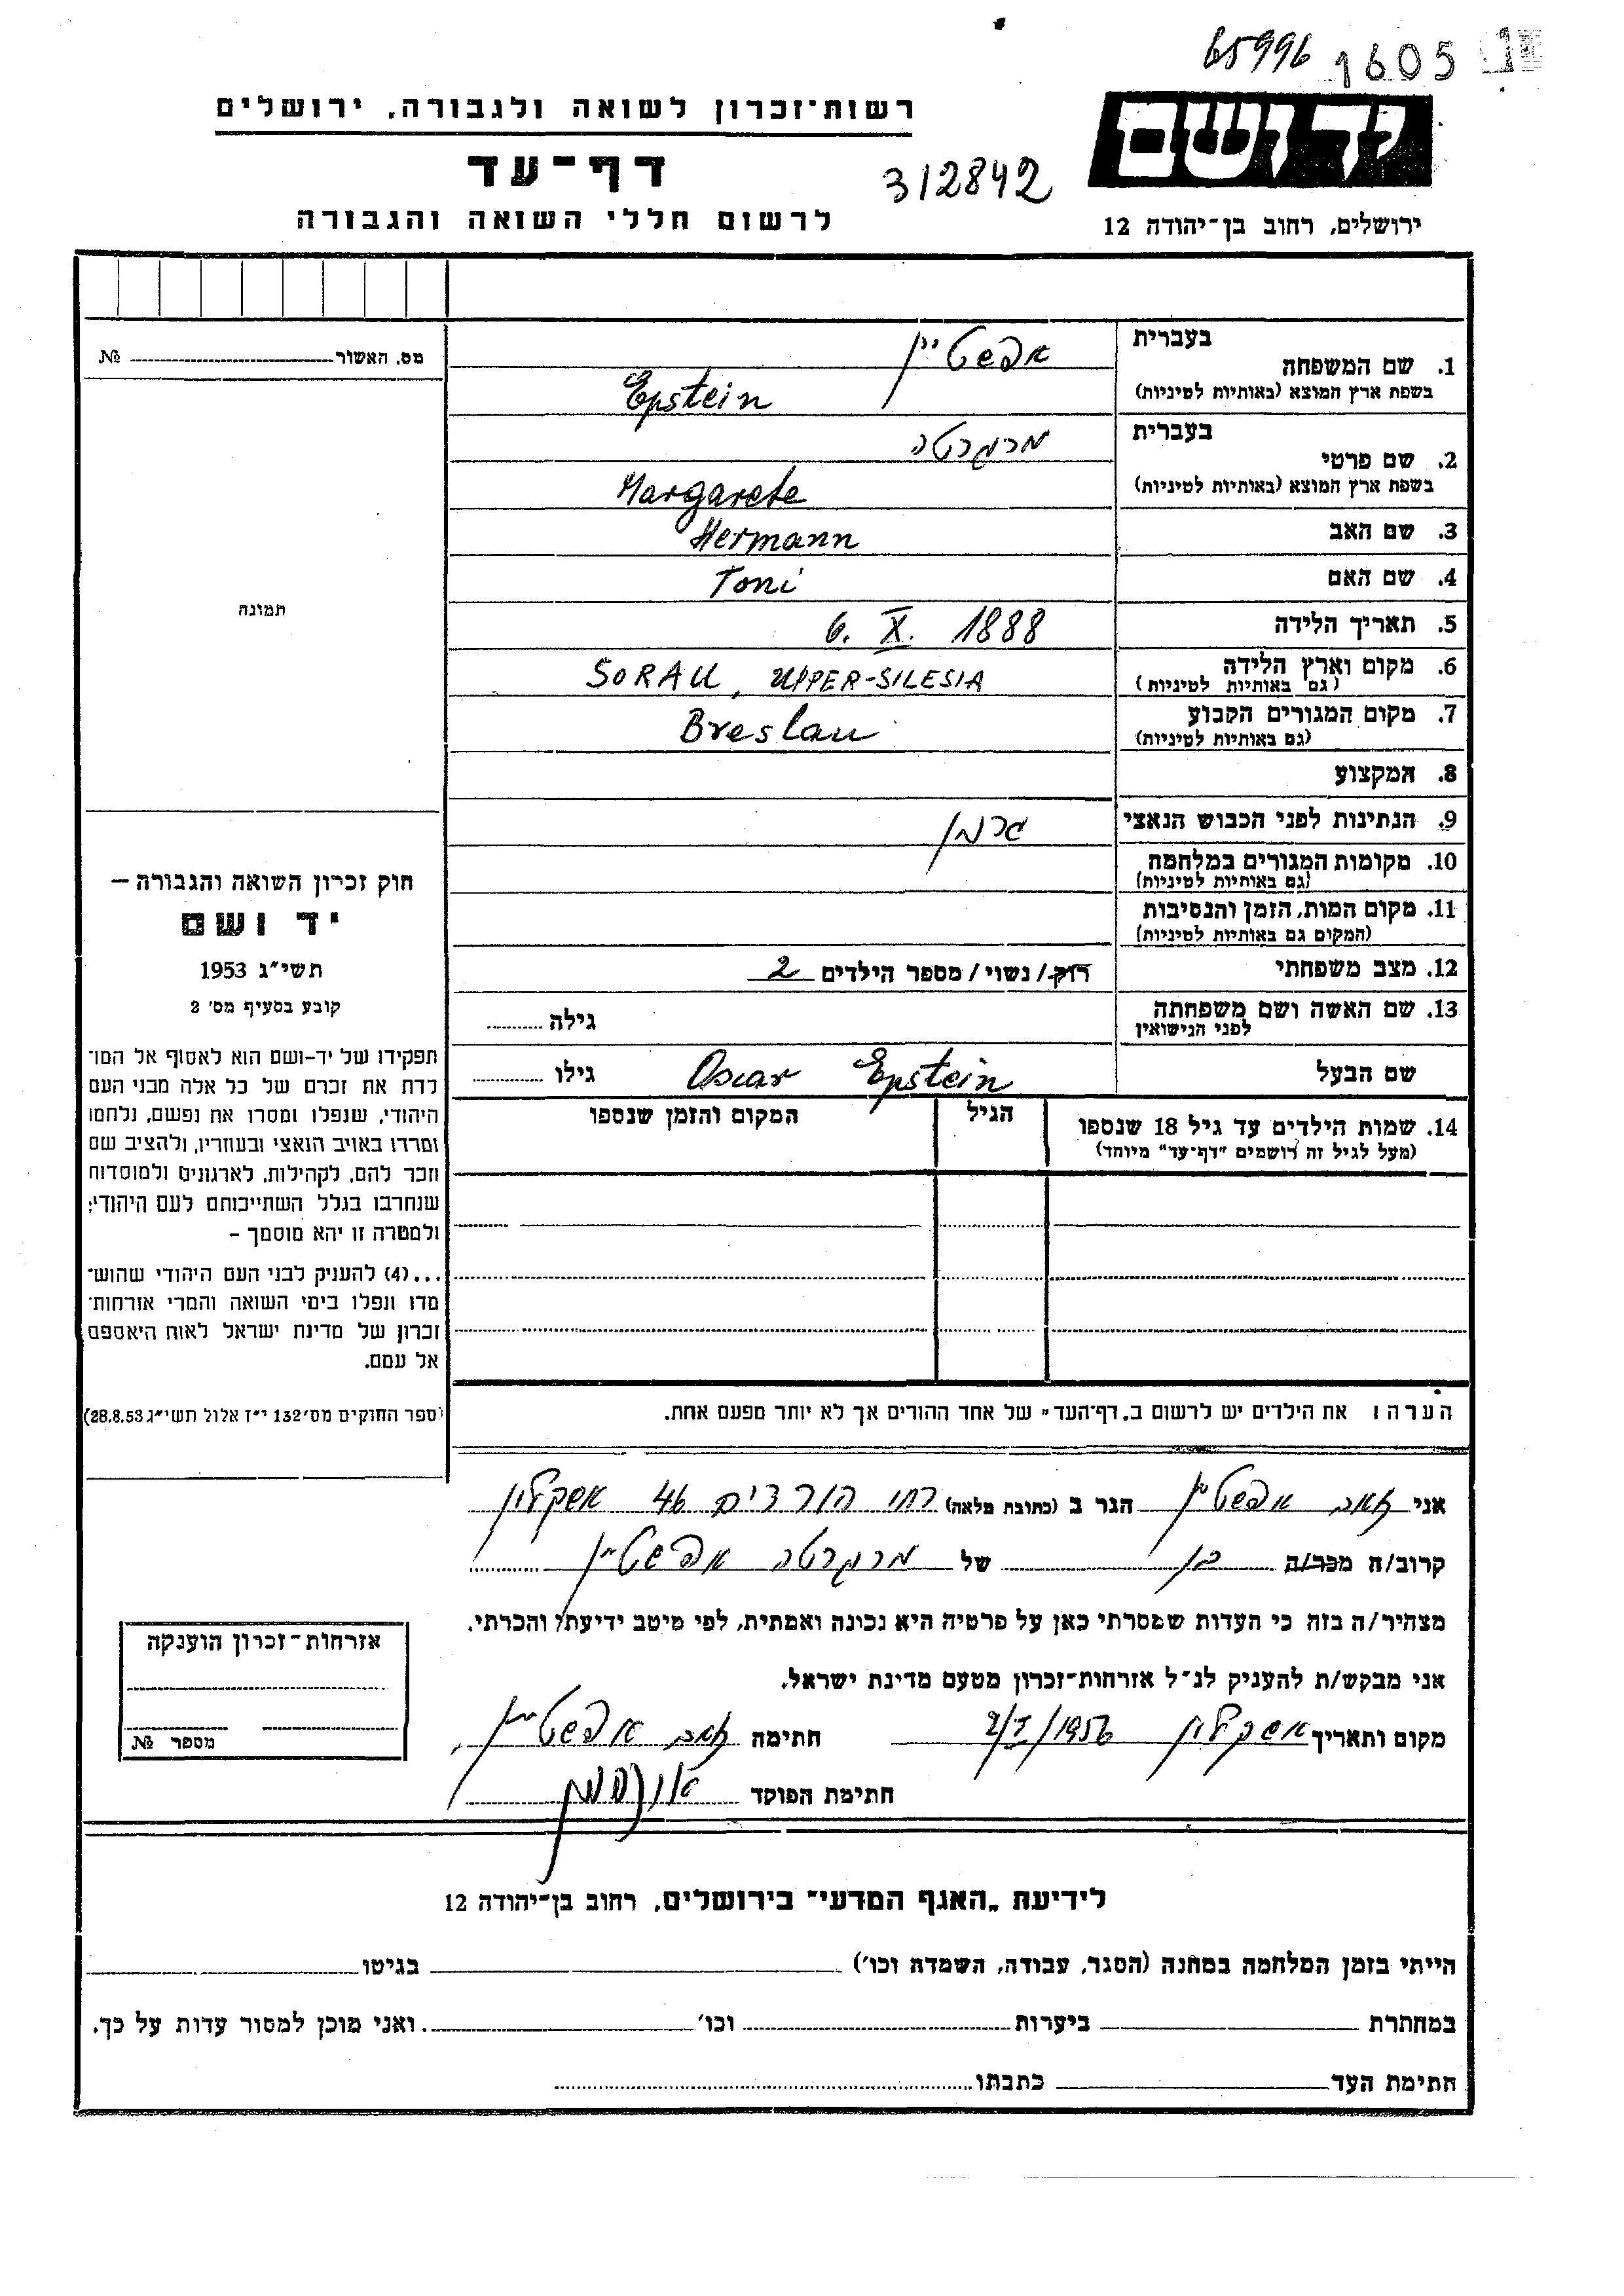 65996 1605
יד ושם
רשות־זכרון לשואה ולגבורה, ירושלים
דף־עד
312842
לרשום חללי השואה והגבורה
ירושלים, רחוב בן־יהודה 12
מס. האשור № 
בעברית
1. שם המשפחה אפשטיין
בשפת ארץ המוצא (באותיות לטיניות) Epstein
בעברית
2. שם פרטי מרגרטה
בשפת ארץ המוצא (באותיות לטיניות) Margarete
3. שם האב Hermann
4. שם האם Toni
תמונה
5. תאריך הלידה 6. X. 1888
6. מקום וארץ הלידה SORAU, UPPER-SILESIA
(גם באותיות לטיניות)
7. מקום המגורים הקבוע Breslau
(גם באותיות לטיניות)
8. המקצוע
9. הנתינות לפני הכבוש הנאצי גרמן
10. מקומות המגורים במלחמה
(גם באותיות לטיניות)
11. מקום המות, הזמן והנסיבות
(המקום גם באותיות לטיניות)
12. מצב משפחתי רוק/נשוי/מספר הילדים 2
13. שם האשה ושם משפחתה גילה
לפני הנישואין
שם הבעל Oscar Epstein גילו
14. שמות הילדים עד גיל 18 שנספו הגיל המקום והזמן שנספו
(מעל לגיל זה רושמים "דף־עד" מיוחד)
חוק זכרון השואה והגבורה –
יד ושם
תשי"ג 1953
קובע בסעיף מס' 2
תפקידו של יד-ושם הוא לאסוף אל המו־
לדת את זכרם של כל אלה מבני העם
היהודי, שנפלו ומסרו את נפשם, נלחמו
ומרדו באויב הנאצי ובעוזריו, ולהציב שם
וזכר להם, לקהילות, לארגונים ולמוסדות
שנחרבו בגלל השתייכותם לעם היהודי;
ולמטרה זו יהא מוסמך –
...(4) להעניק לבני העם היהודי שהוש־
מדו ונפלו בימי השואה והמרי אזרחות־
זכרון של מדינת ישראל לאות היאספם
אל עמם.
(ספר החוקים מס' 132 י"ז אלול תשי"ג 28.8.53)
הערה: את הילדים יש לרשום ב„דף־העד" של אחד ההורים אך לא יותר מפעם אחת.
אני זאב אפשטיין הגר ב (כתובת מלאה) רחו הורדים 46 אשקלון
קרוב/ה מכר/ה בן של מרגרטה אפשטיין
מצהיר/ה בזה כי העדות שמסרתי כאן על פרטיה היא נכונה ואמתית, לפי מיטב ידיעתי והכרתי.
אני מבקש/ת להעניק לנ"ל אזרחות־זכרון מטעם מדינת ישראל.
מקום ותאריך אשקלון 2/I/1956 חתימה זאב אפשטיין
חתימת הפוקד
אזרחות־זכרון הוענקה
מספר №
לידיעת „האגף המדעי" בירושלים, רחוב בן־יהודה 12
הייתי בזמן המלחמה במחנה (הסגר, עבודה, השמדה וכו') בגיטו
במחתרת ביערות וכו' ואני מוכן למסור עדות על כך.
חתימת העד כתבתו